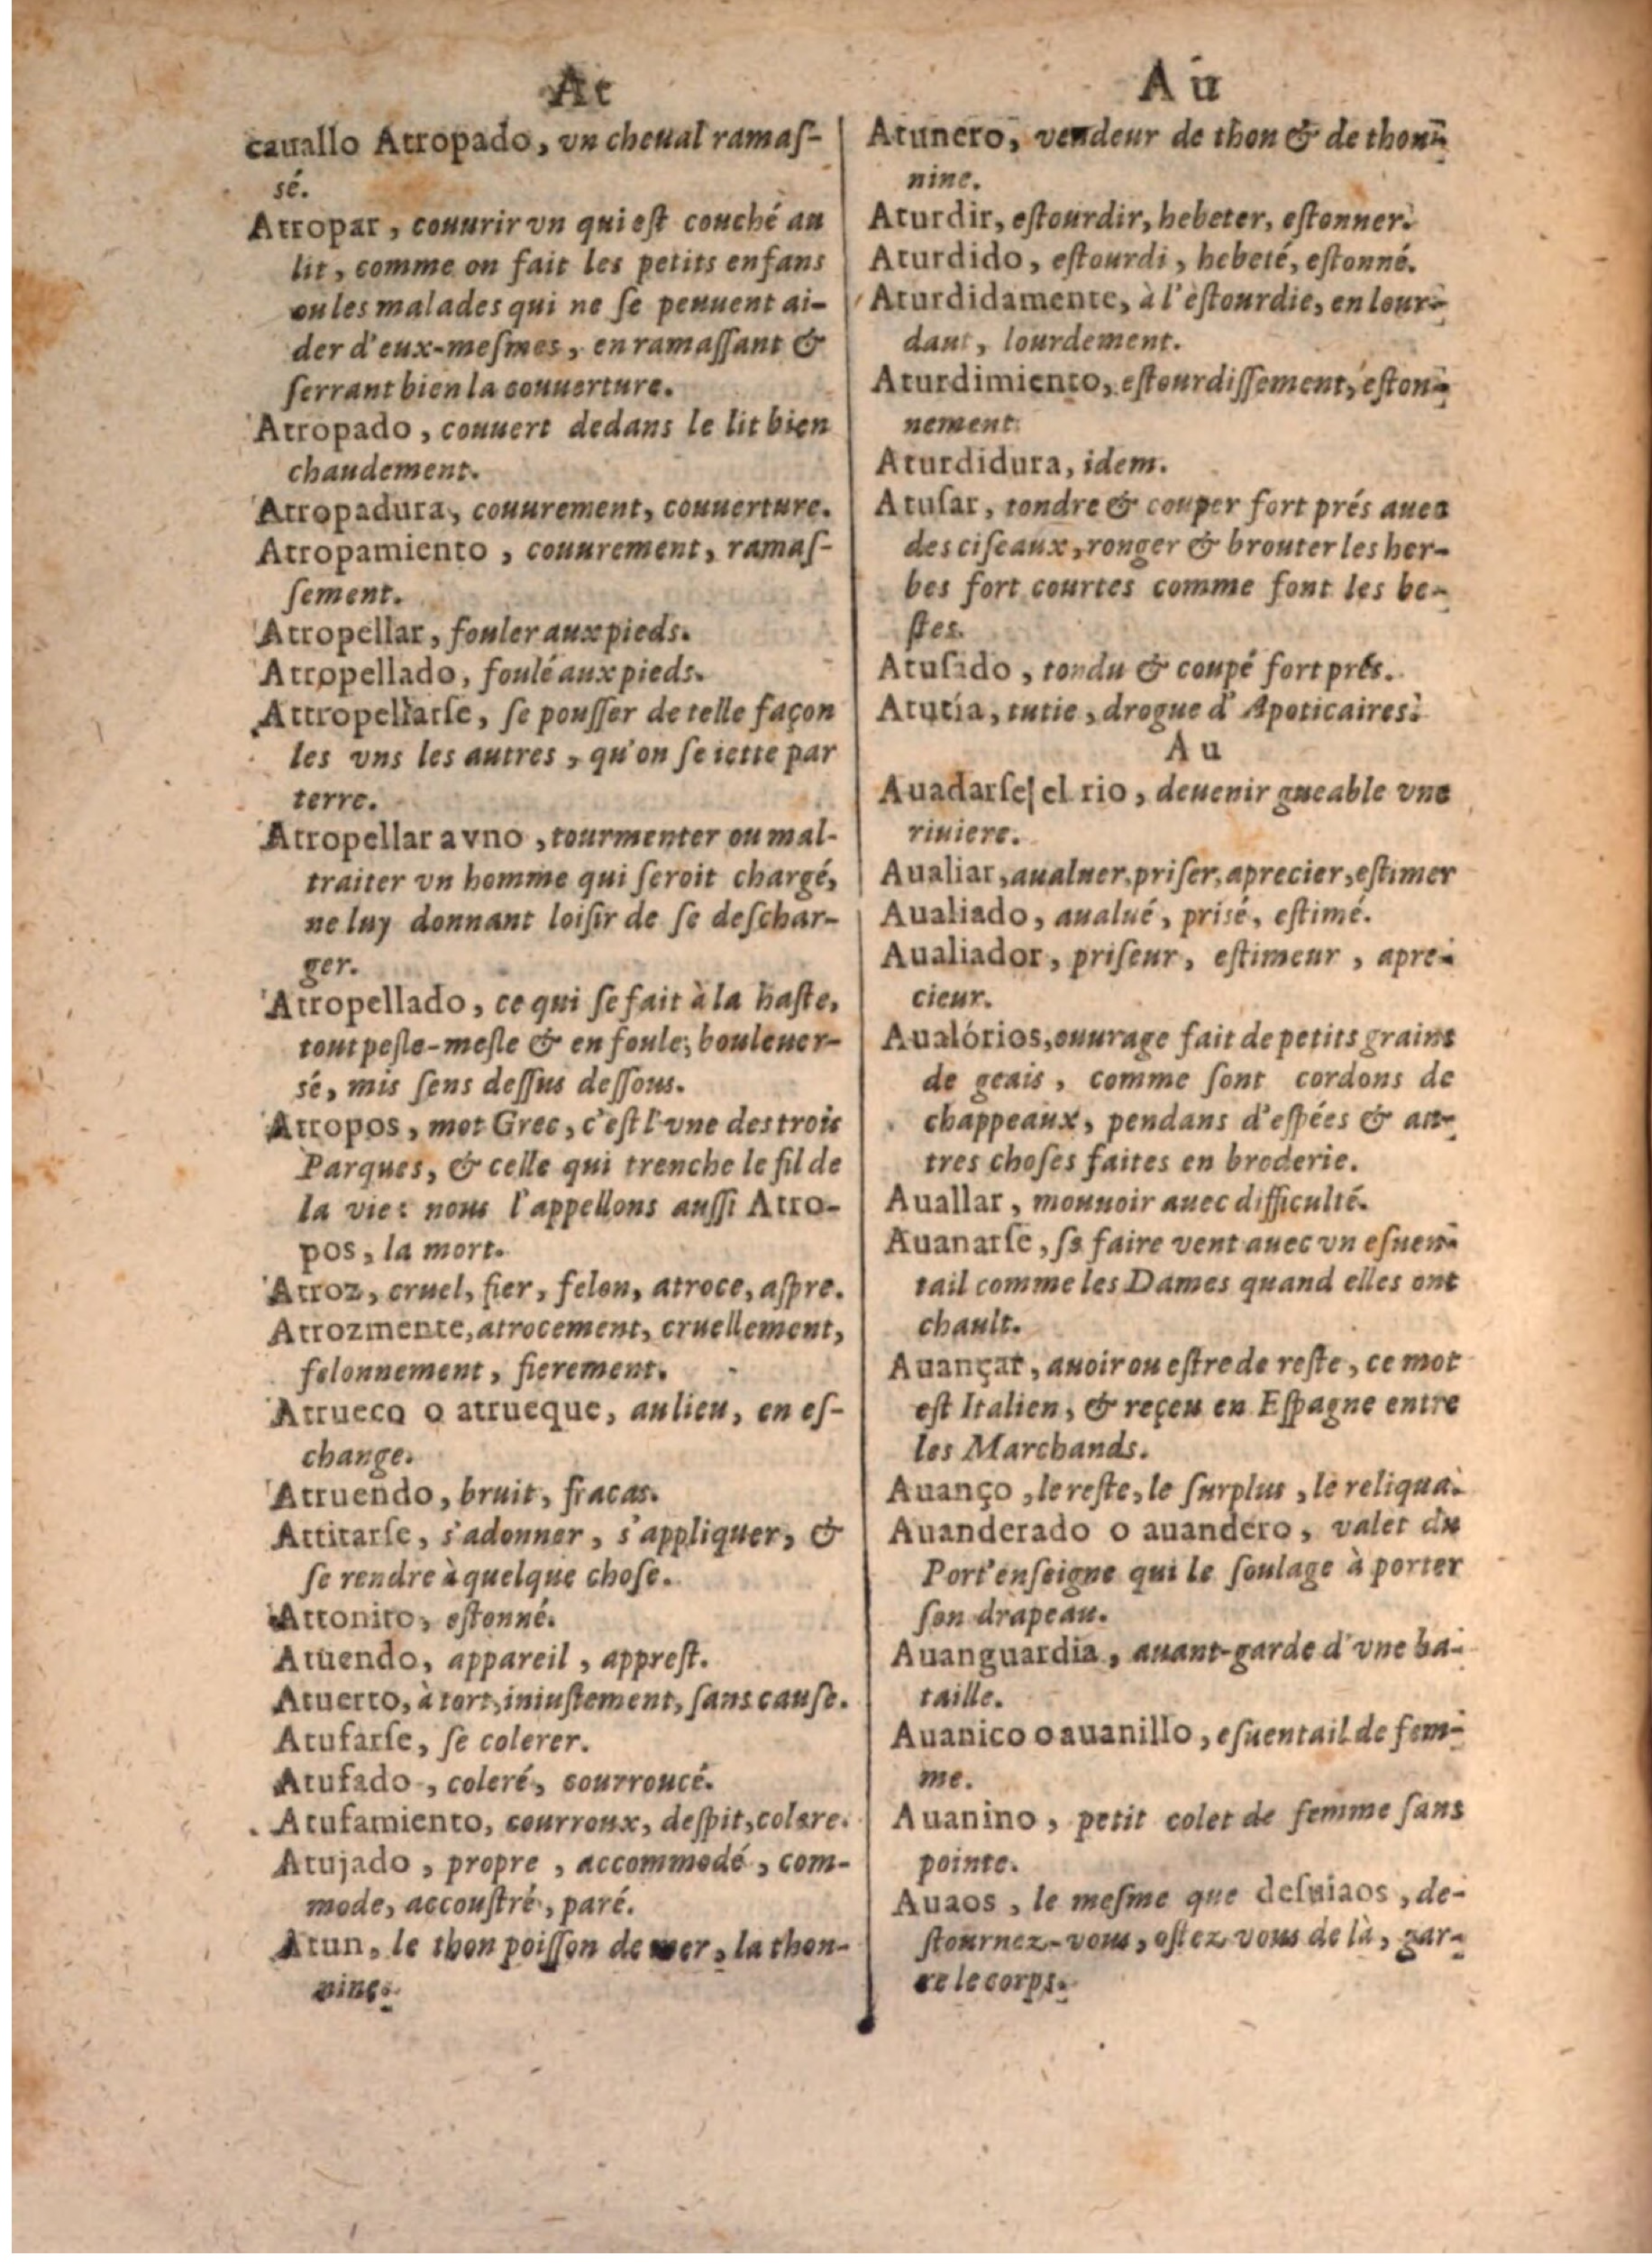 At
cauallo Atropado, vn cheual ramaſ-
sé.
Atropar, couurir vn qui eſt couché au
lit, comme on fait les petits enfans
ou les malades qui ne ſe peuuent ai-
der d'eux-meſmes, en ramaſſant &
ſerrant bien la couuerture.
Atropado, couuert dedans le lit bien
chaudement.
Atropadura, couurement, couuerture.
Atropamiento, couurement, ramaſ-
ſement.
Atropellar, fouler aux pieds.
Atropellado, foulé aux pieds.
Attropellarſe, ſe pouſſer de telle façon
les vns les autres, qu'on ſe iette par
terre.
Atropellar a vno, tourmenter ou mal-
traiter vn homme qui ſeroit chargé,
ne luy donnant loiſir de ſe deſchar-
ger.
Atropellado, ce qui ſe fait à la haſte,
tout peſle-meſle & en foule, bouleuer-
sé, mis ſens deſſus deſſous.
Atropos, mot Grec, c'eſt l'vne des trois
Parques, & celle qui trenche le fil de
la vie: nous l'appellons auſſi Atro-
pos, la mort.
Atroz, cruel, fier, felon, atroce, aſpre.
Atrozmente, atrocement, cruellement,
felonnement, fierement.
Atrueco o atrueque, au lieu, en eſ-
change.
Atruendo, bruit, fracas.
Attitarſe, s'adonner, s'appliquer, &
ſe rendre à quelque choſe.
Attonito, eſtonné.
Atuendo, appareil, appreſt.
Atuerto, à tort, iniuſtement, ſans cauſe.
Atufarſe, ſe colerer.
Atufado, coleré, courroucé.
Atufamiento, courroux, deſpit, colere.
Atujado, propre, accommodé, com-
mode, accouſtré, paré.
Atun, le thon poiſſon de mer, la thon-
nine.
Au
Atunero, vendeur de thon & de thon-
nine.
Aturdir, eſtourdir, hebeter, eſtonner.
Aturdido, eſtourdi, hebeté, eſtonné.
Aturdidamente, à l'eſtourdie, en lour-
daut, lourdement.
Aturdimiento, eſtourdiſſement, eſton-
nement.
Aturdidura, idem.
Atuſar, tondre & couper fort prés auec
des ciſeaux, ronger & brouter les her-
bes fort courtes comme font les be-
ſtes.
Atuſado, tondu & coupé fort prés.
Atutía, tutie, drogue d'Apoticaires.
Au
Auadarſe el rio, deuenir gueable vne
riuiere.
Aualiar, aualuer, priſer, aprecier, eſtimer
Aualiado, aualué, prisé, eſtimé.
Aualiador, priſeur, eſtimeur, apre-
cieur.
Aualórios, ouurage fait de petits grains
de geais, comme ſont cordons de
chappeaux, pendans d'eſpées & au-
tres choſes faites en broderie.
Auallar, mouuoir auec difficulté.
Auanarſe, ſe faire vent auec vn eſuen-
tail comme les Dames quand elles ont
chault.
Auançar, auoir ou eſtre de reſte, ce mot
eſt Italien, & reçeu en Eſpagne entre
les Marchands.
Auanço, le reſte, le ſurplus, le reliqua.
Auanderado o auandero, valet du
Port'enſeigne qui le ſoulage à porter
ſon drapeau.
Auanguardia, auant-garde d'vne ba-
taille.
Auanico o auanillo, eſuentail de fem-
me.
Auanino, petit colet de femme ſans
pointe.
Auaos, le meſme que deſuiaos, de-
ſtournez-vous, oſtez vous de là, gar-
re le corps.